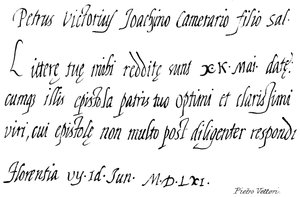 Petrus Victorius Ioachino Camerario filio sal.
Litterę tuę mihi redditę sunt X K. Mai. datę:
cumq; illis epistola patris tuo optimi et clarissimi
viri, cui epistolę non multo post diligenter respondi
Florentia vij. id. Iun. M.D.LXI.
Pietro Vettori.